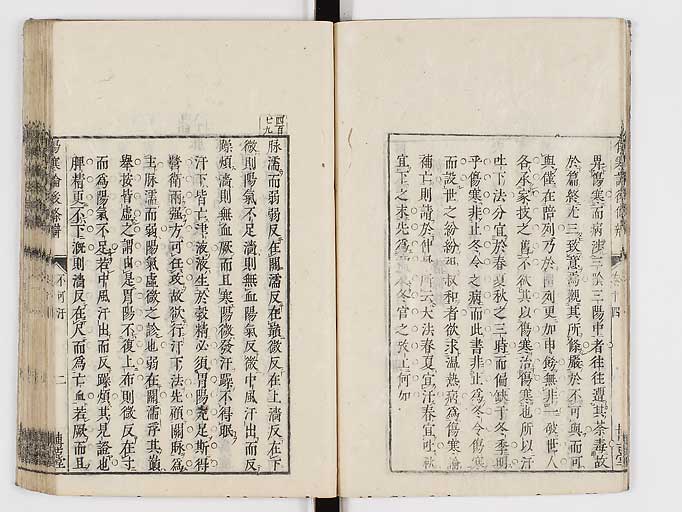 畀傷寒而病涉三陰三陽中者往往遭其荼毒故
於篇終尤三致意焉觀其所條嚴於不可與而可
與僅在陪列乃於陪列更加申飭無非一破世人
各承家技之舊不欲其以傷寒治傷寒也所以汗
吐下法分宜於春夏秋之三時而偏缺于冬季明
乎傷寒非止冬令之病而此書非止為冬令傷寒
而設世之紛紛祖叔和者欲求溫熱病為傷寒論
補亡則請於仲景所云大法春夏宜汗春宜吐秋
宜下之未先為補冬官之政上何如
四百七九
脉濡而弱弱反在關濡反在巔微反在上濇反在下
微則陽氣不足濇則無血陽氣反微中風汗出而反
躁煩濇則無血厥而且寒陽微發汗躁不得眠
汗下皆亡津液液生於穀精必須胃陽充足斯得
營衛兩强方可任攻故欲行汗下法先須關脉為
主脉濡而弱陽氣虛微之診也弱在關濡浮其巔
舉按皆虛之謂由是胃陽不復上布則微反在寸
而為陽氣不足若中風汗出而反躁煩其見證也
脾精更不下漑則濇反在尺而為亡血若厥而且
傷寒論後條辨
不可汗
二